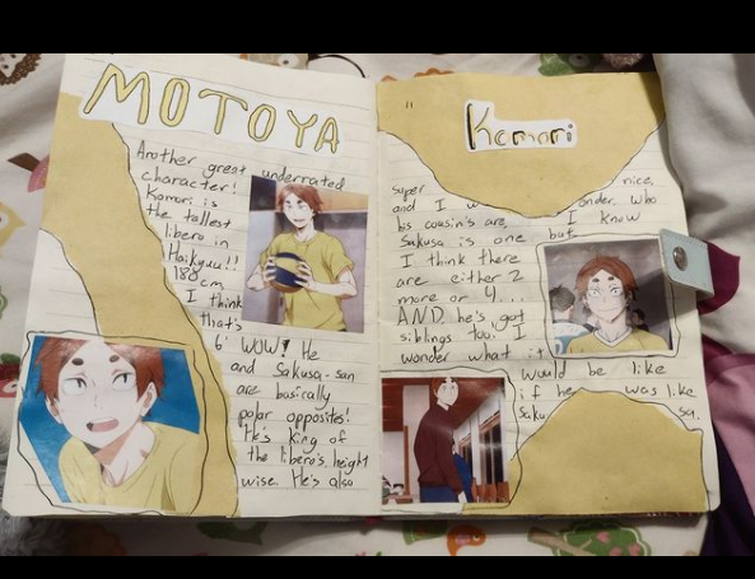 MOTOYA
Another great underrated
character!
Komori is
the tallest
libero in
Haikyuu!!
180 cm
I think
that's
6' WOW! He
and Sakusa-san
are basically
polar opposites!
He's king of
the libero's height
wise. He's also
"
Komori
super nice,
and I w onder who
his cousin's are, I know
Sakusa is one but
I think there
are either 2
more or 4...
AND he's got
siblings too! I
wonder what it
would be like
if he was like
Saku sa.